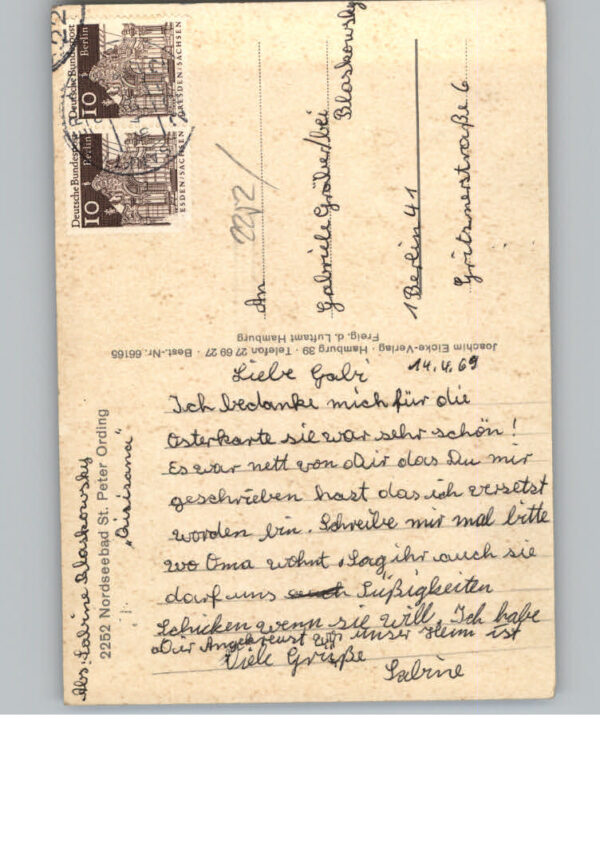 14.4.69
Liebe Gabi
Ich bedanke mich für die
Osterkarte sie war sehr schön!
Es war nett von Dir das Du mir
geschrieben hast das ich versetst
worden bin. Schreibe mir mal bitte
wo Oma wohnt. Sag ihr auch sie
darf uns auch Süßigkeiten
schicken wenn sie will. Ich habe
Dir Angekreust wo unser Heim ist
Viele Grüße
Sabine
Abs. Sabine Blaskowsky
2252 Nordseebad St. Peter Ording
„Quisisana"
Joachim Eicke-Verlag · Hamburg 39 · Telefon 27 69 27 · Best.-Nr. 66165
Freig. d. Luftamt Hamburg
2252/
An
Gabriele Gräber/bei
Blaskowsky
1 Berlin 41
Gritznerstraße 6
Deutsche Bundespost
Berlin
10
ESDEN/SACHSEN
Deutsche Bundespost
Berlin
10
DRESDEN/SACHSEN